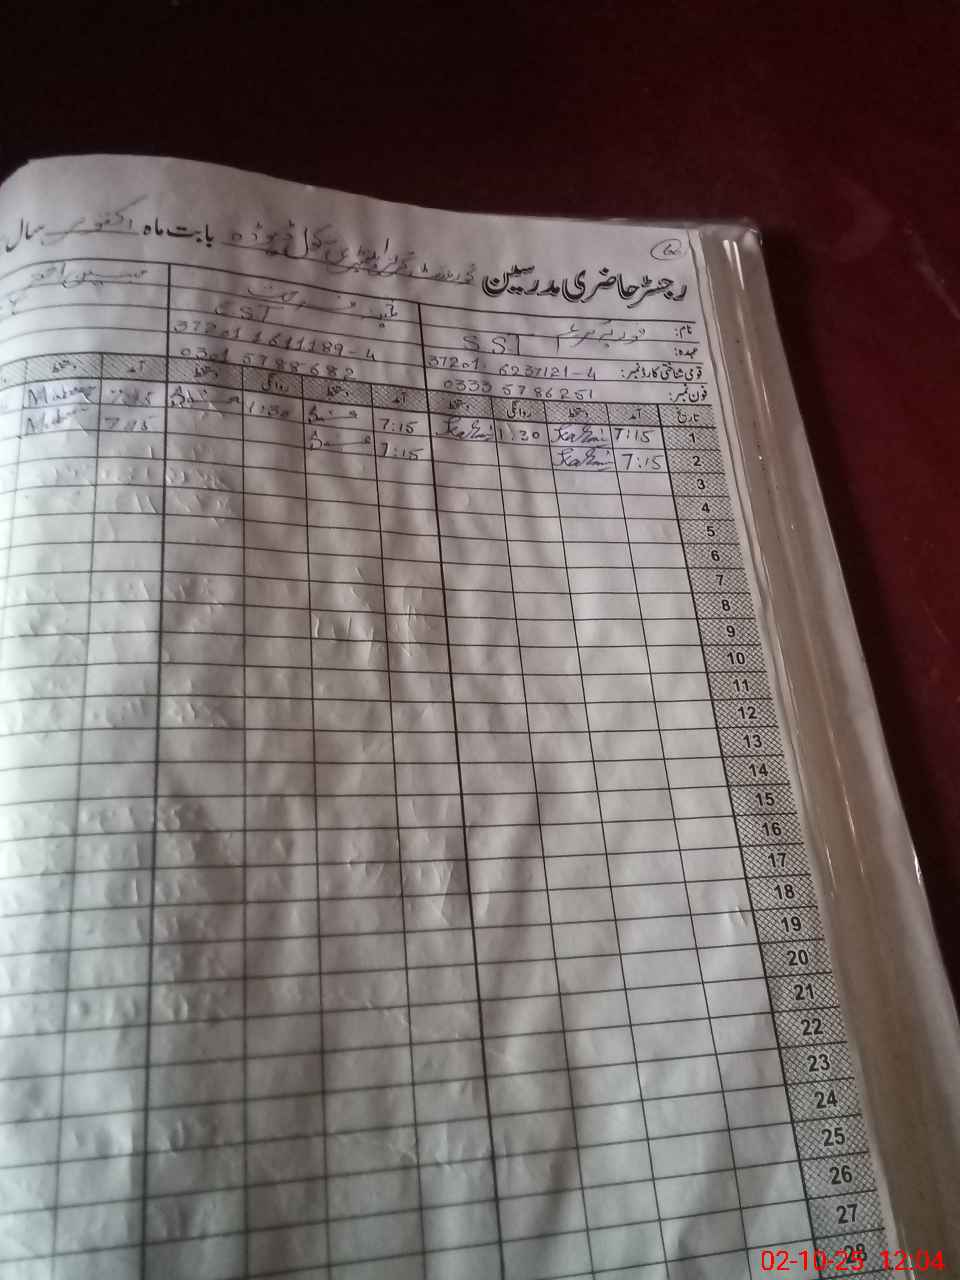 رجسٹر حاضری مدرسین گورنمنٹ سکول بابت ماہ اکتوبر سال
نام:
عہدہ: S.S.T
قومی شناختی کارڈ نمبر: 37201 6237121-4 37201 1611189-4
فون نمبر: 0333 5786251 0301 5788682
تاریخ آمد دستخط روانگی دستخط آمد دستخط روانگی دستخط آمد دستخط
1 7:15 1:30 7:15 1:30 7:15
2 7:15 7:15 7:15
3
4
5
6
7
8
9
10
11
12
13
14
15
16
17
18
19
20
21
22
23
24
25
26
27
28
02-10-25 12:04